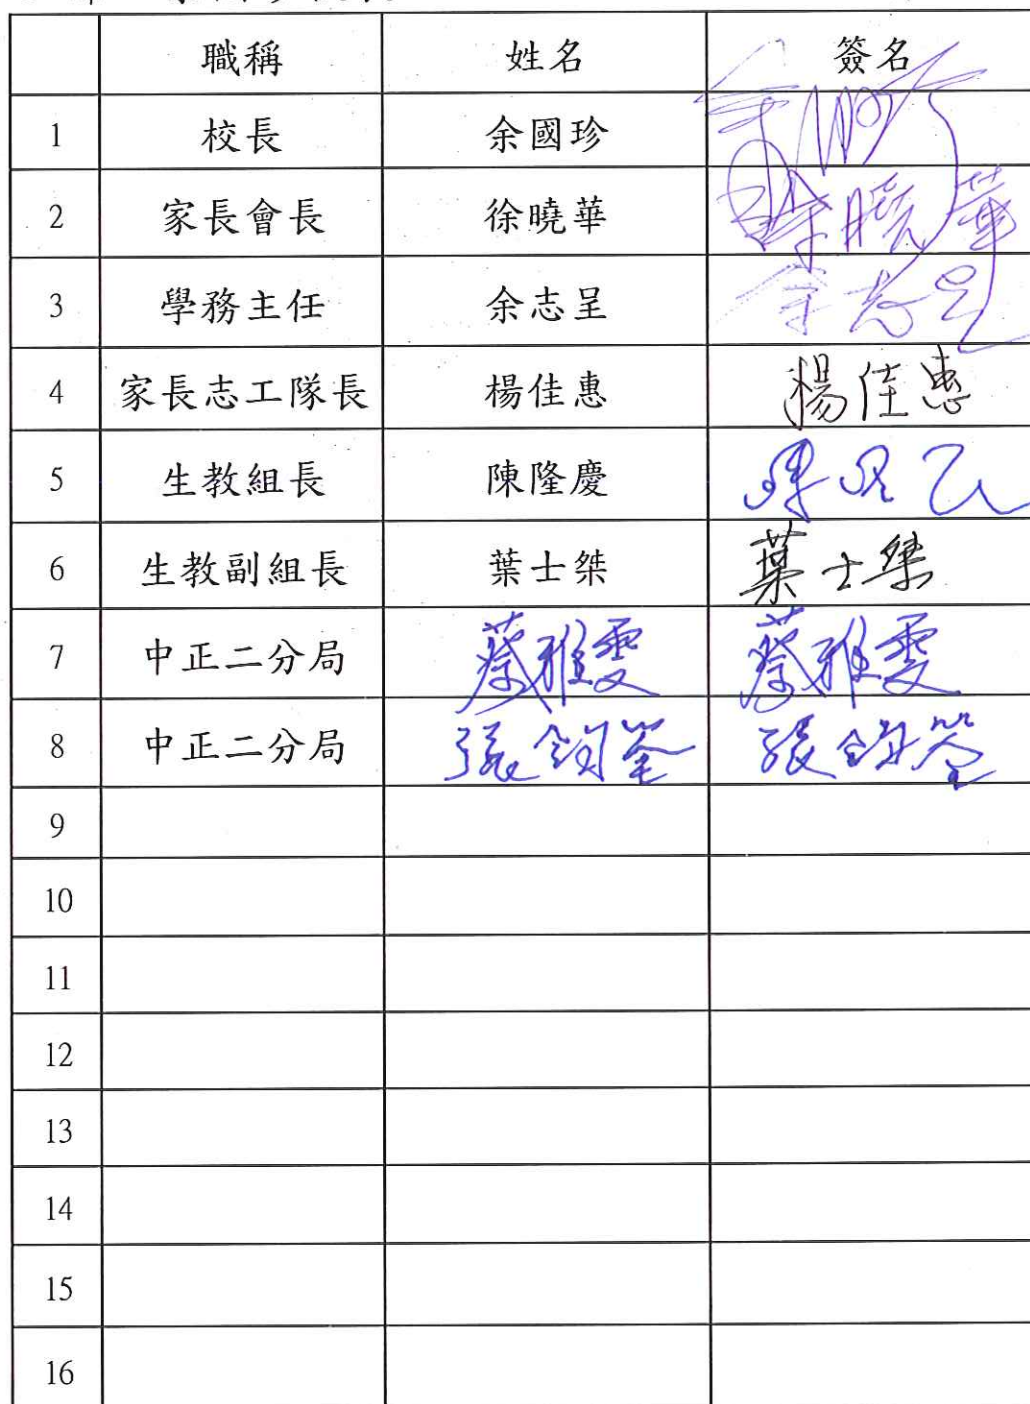 職稱 姓名 簽名
1 校長 余國珍
2 家長會長 徐曉華 徐曉華
3 學務主任 余志呈 余志呈
4 家長志工隊長 楊佳惠 楊佳惠
5 生教組長 陳隆慶
6 生教副組長 葉士桀 葉士桀
7 中正二分局 蔡雅雯 蔡雅雯
8 中正二分局 張鈞筌 張鈞筌
9
10
11
12
13
14
15
16